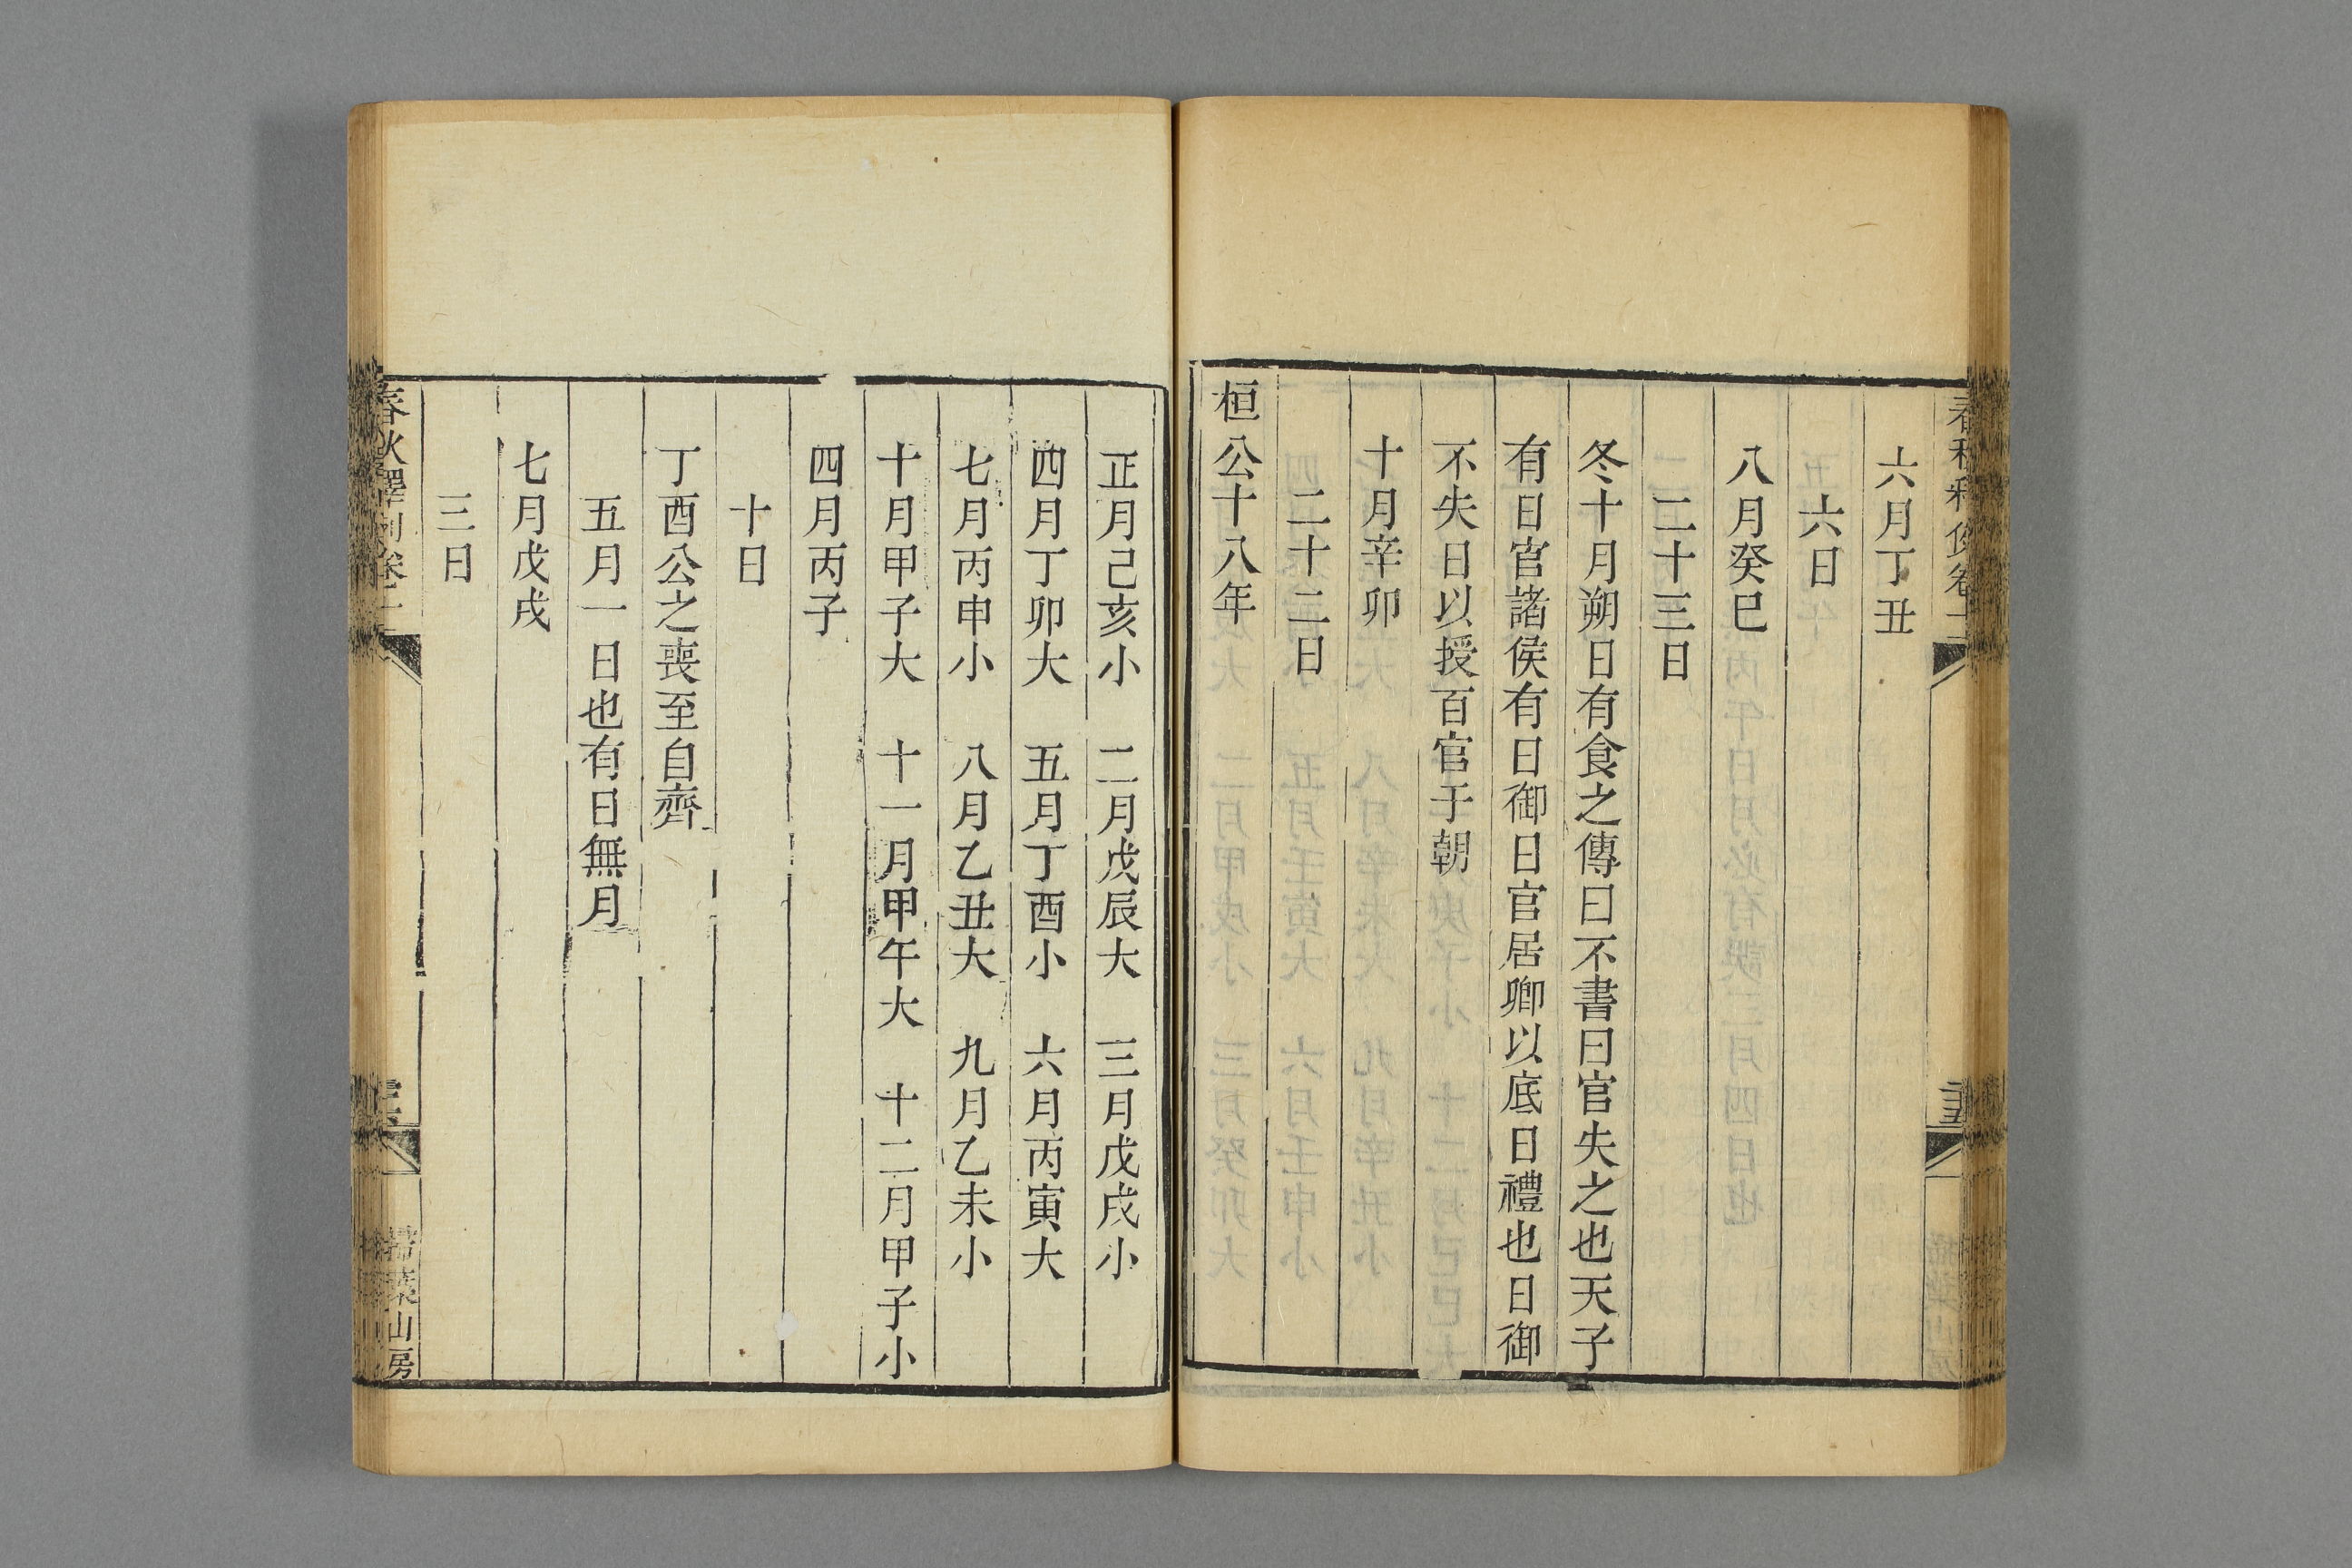 六月丁丑
六日
八月癸巳
二十三日
冬十月朔日有食之傳曰不書日官失之也天子
有日官諸侯有日御日官居卿以底日禮也日御
不失日以授百官于朝
十月辛卯
二十二日
桓公十八年
正月己亥小　二月戊辰大　三月戊戌小
四月丁卯大　五月丁酉小　六月丙寅大
七月丙申小　八月乙丑大　九月乙未小
十月甲子大　十一月甲午大　十二月甲子小
四月丙子
十日
丁酉公之喪至自齊
五月一日也有日無月
七月戊戌
三日
春秋釋例卷十
掃葉山房